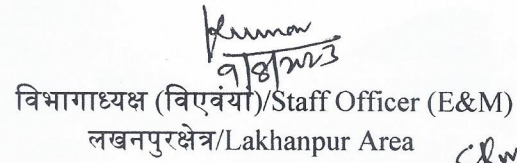 Kumar
9/8/2023
विभागाध्यक्ष (विएवंयाॅ)/Staff Officer (E&M)
लखनपुरक्षेत्र/Lakhanpur Area